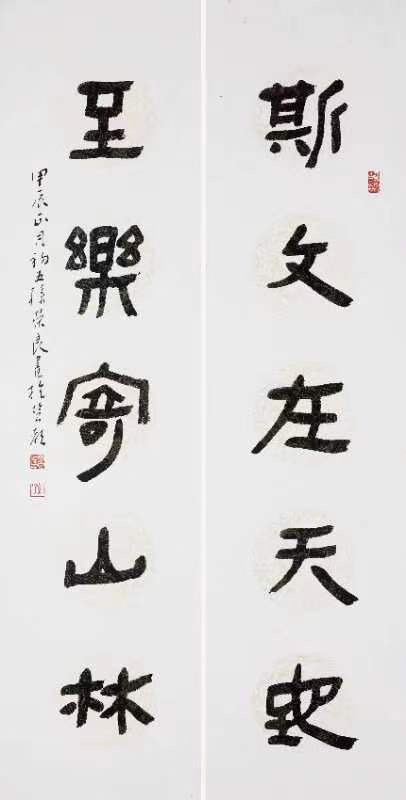 斯文在天地
至樂寄山林
甲辰正月初五 榮良書於